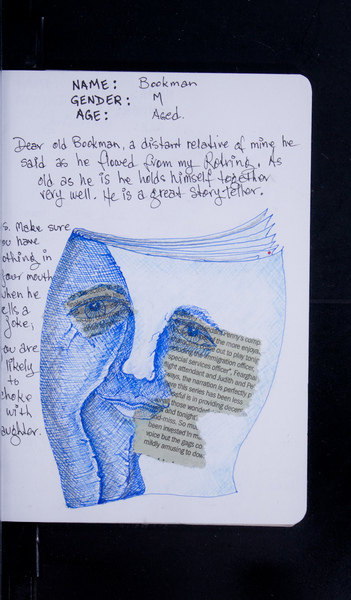 NAME: Bookman
GENDER: M
AGE: Aged.
Dear old Bookman, a distant relative of mine he
said as he flowed from my Rotring. As
old as he is he holds himself together
very well. He is a great story-teller.
s. Make sure
ou have
othing in
your mouth
when he
ells a
joke;
ou are
likely
to
choke
with
aughter.
Penny's comb
the more enjoys
out to play tonig
including the immigration officer,
special services officer". Fearghas
ight attendant and Judith and Pe
ways, the narration is perfectly p
how this series has been
useful is in providing decen
those wonder
and tonight
and-miss. So mu
been invested in m
voice but the gags co
mildly amusing to dow